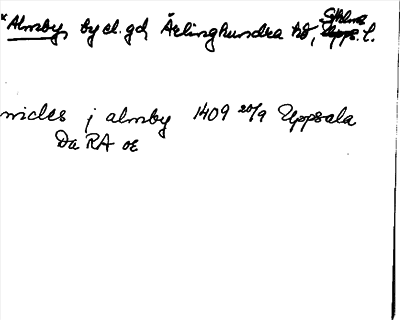 *Almby, by el. gd, Ärlinghundra hd, Sthlms l.
nicles j almby 1409 20/9 Uppsala
Da RA oe